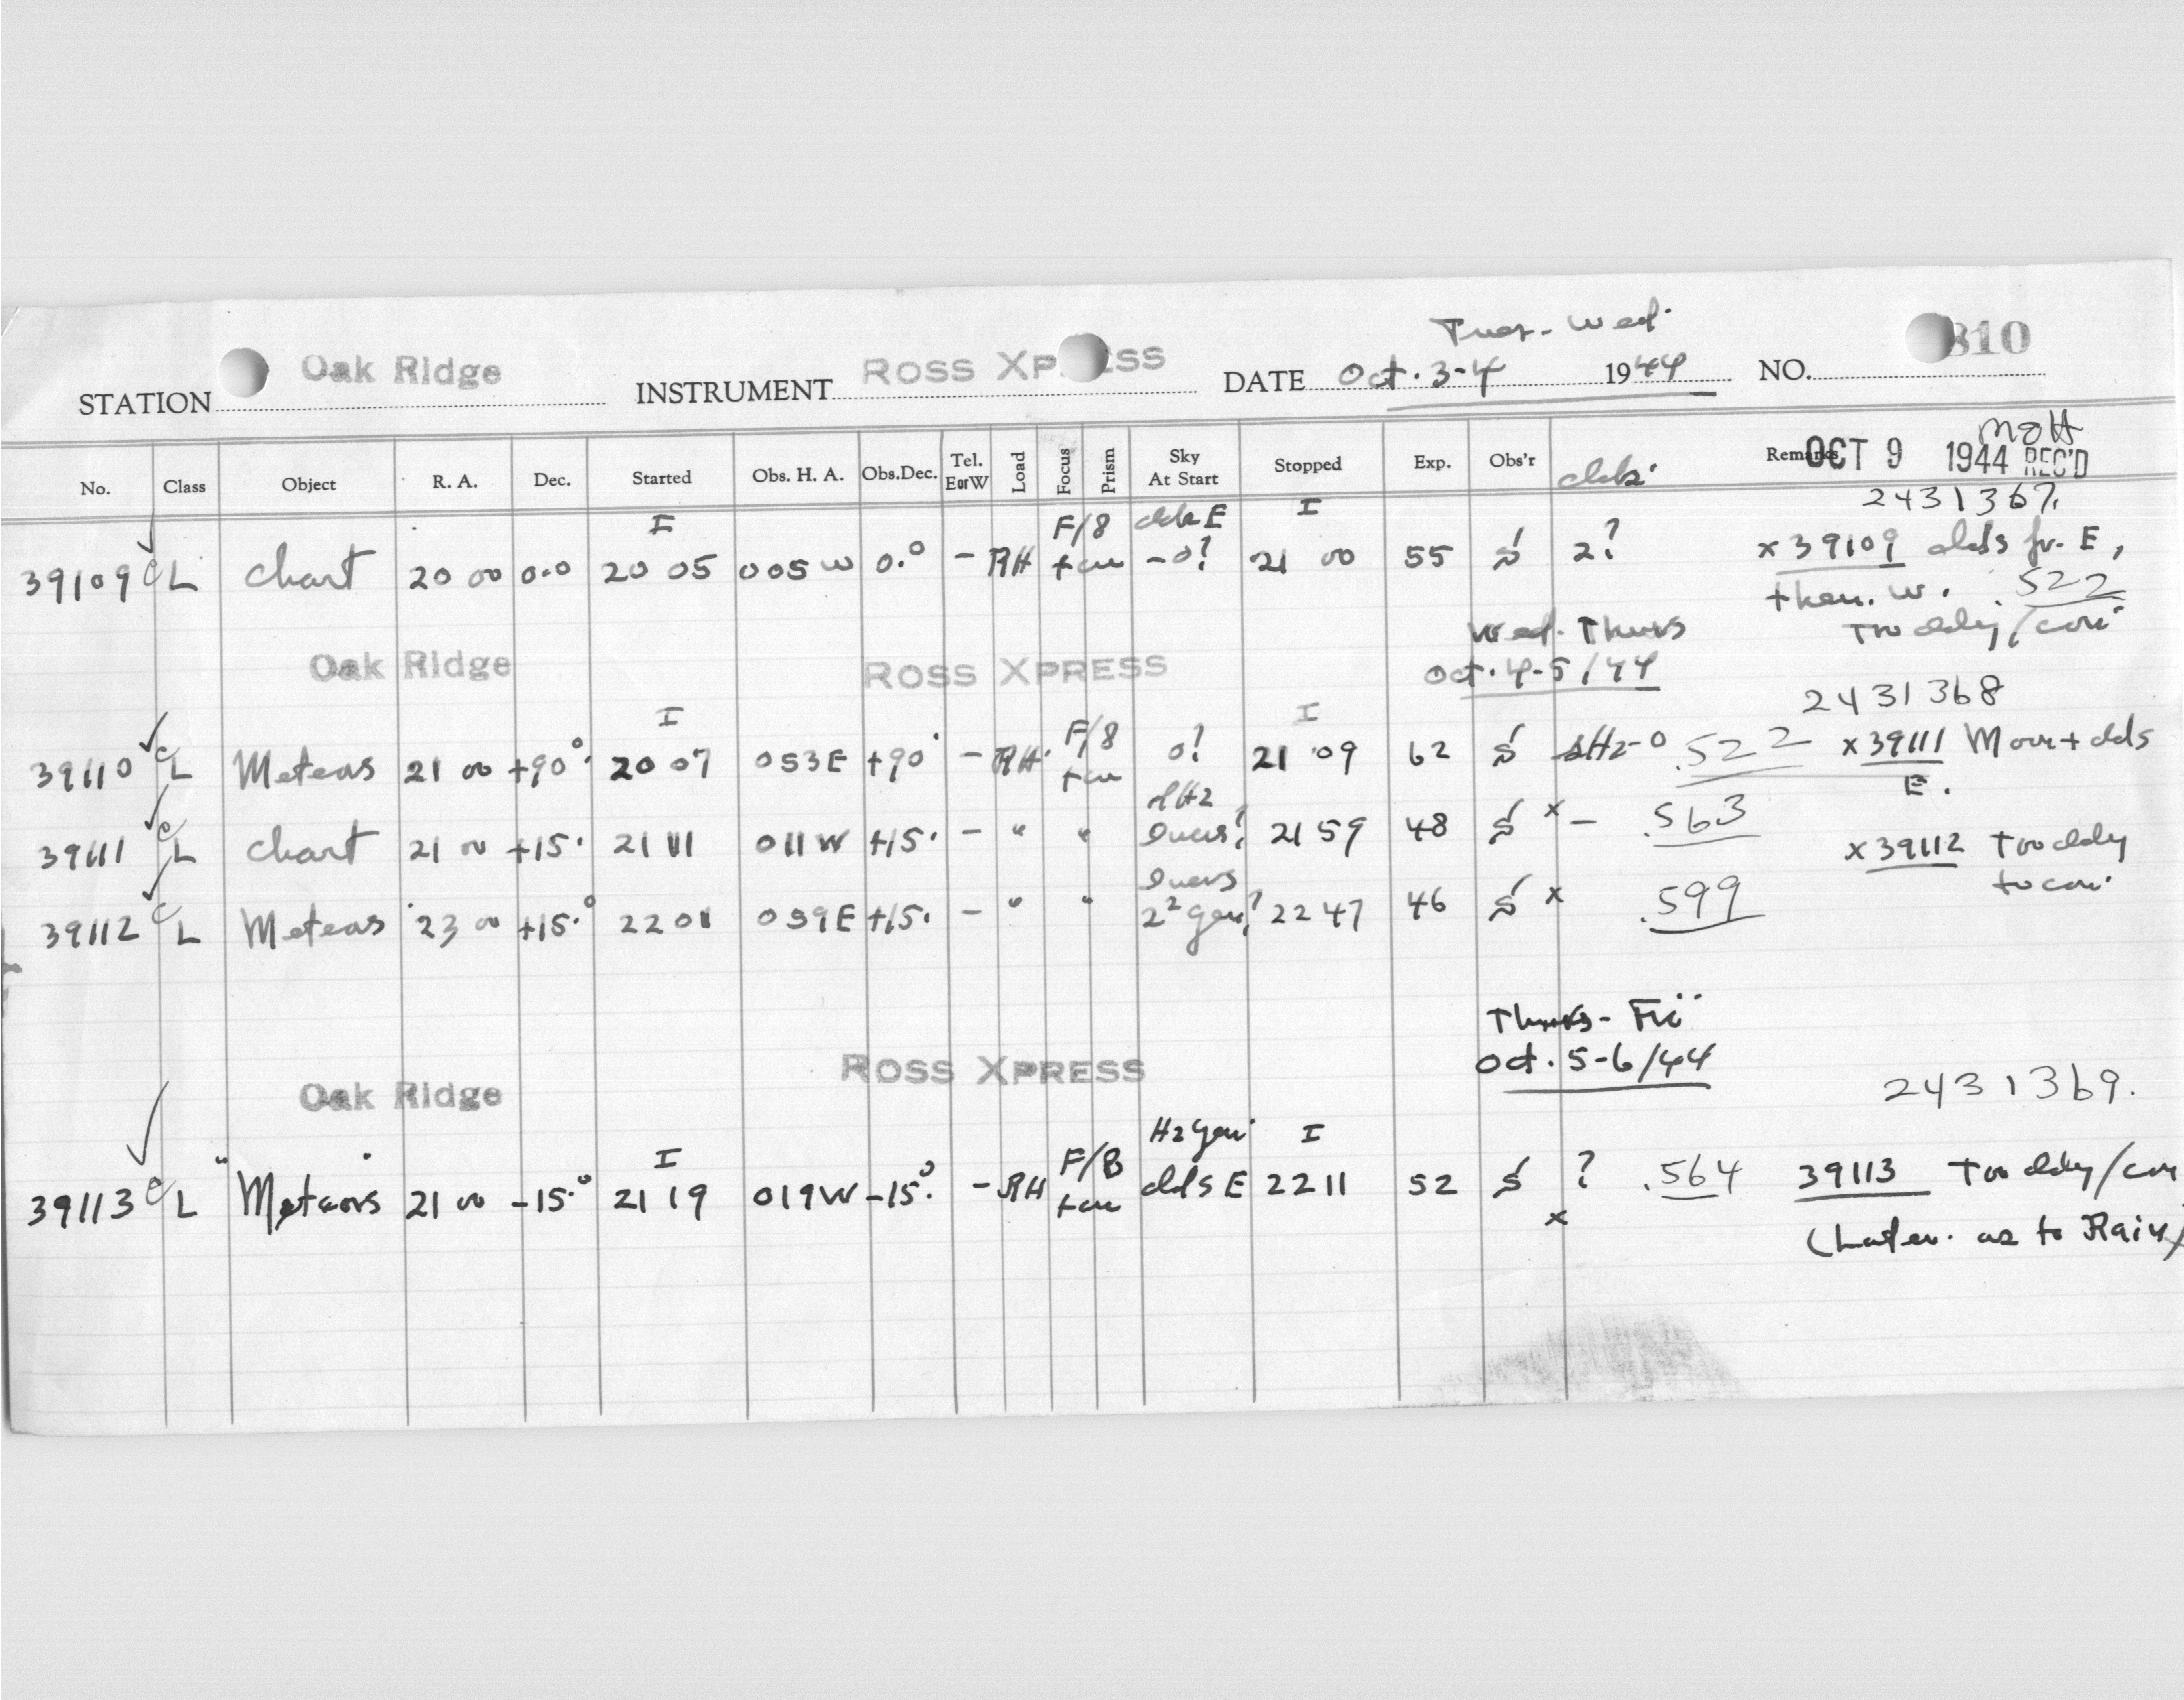 Tues - Wed.
STATION Oak Ridge INSTRUMENT ROSS XPRESS DATE Oct. 3-4 1944 NO. 310
MOH
No. Class Object R. A. Dec. Started Obs. H. A. Obs.Dec. Tel. E or W Load Focus Prism Sky At Start Stopped Exp. Obs'r clds. Remarks OCT 9 1944 REC'D
2431367.
I F/8 clds E I
39109 C L Chart 20 00 0.0 20 05 005 W 0.° - RH -0? 21 00 55 S 2? x 39109 clds fr. E,
then. W. .522
Too cldy/con
Wed. Thurs
Oak Ridge ROSS XPRESS Oct. 4-5/44
2431368
I F/8 I
39110 C L Meteors 21 00 +90° 20 07 053E +90 - RH 0? 21 09 62 S .522 x 39111 Moon + clds
E.
39111 C L Chart 21 00 +15. 21 11 011W +15. - " " 21 59 48 S x - .563
x 39112 Too cldy
to con.
39112 C L Meteors 23 00 +15.° 22 01 059E +15. - " " 22 47 46 S x .599
Thurs - Fri
Oak Ridge ROSS XPRESS Oct. 5-6/44
2431369.
I F/8 I
39113 C L "Meteors 21 00 -15.° 21 19 019W -15.° - RH clds E 22 11 52 S ? .564 39113 Too cldy/con
x (Later. as to Rain)